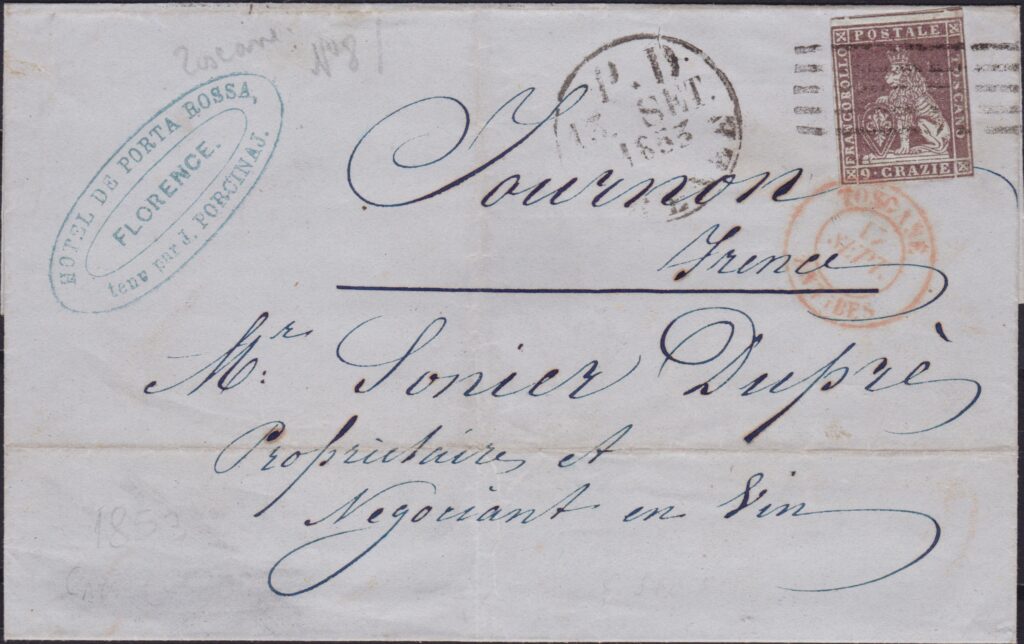 Toscane.
HOTEL DE PORTA ROSSA,
FLORENCE.
tenu par J. PORCINAJ.
P. D.
13 SET.
1853
FRANCOBOLLO POSTALE TOSCANO
9 · CRAZIE
TOSCANE
SEPT.
ANTIBES
Tournon
France
Mr. Sonier Dupré
Propriétaire et
Négociant en Vin
1853